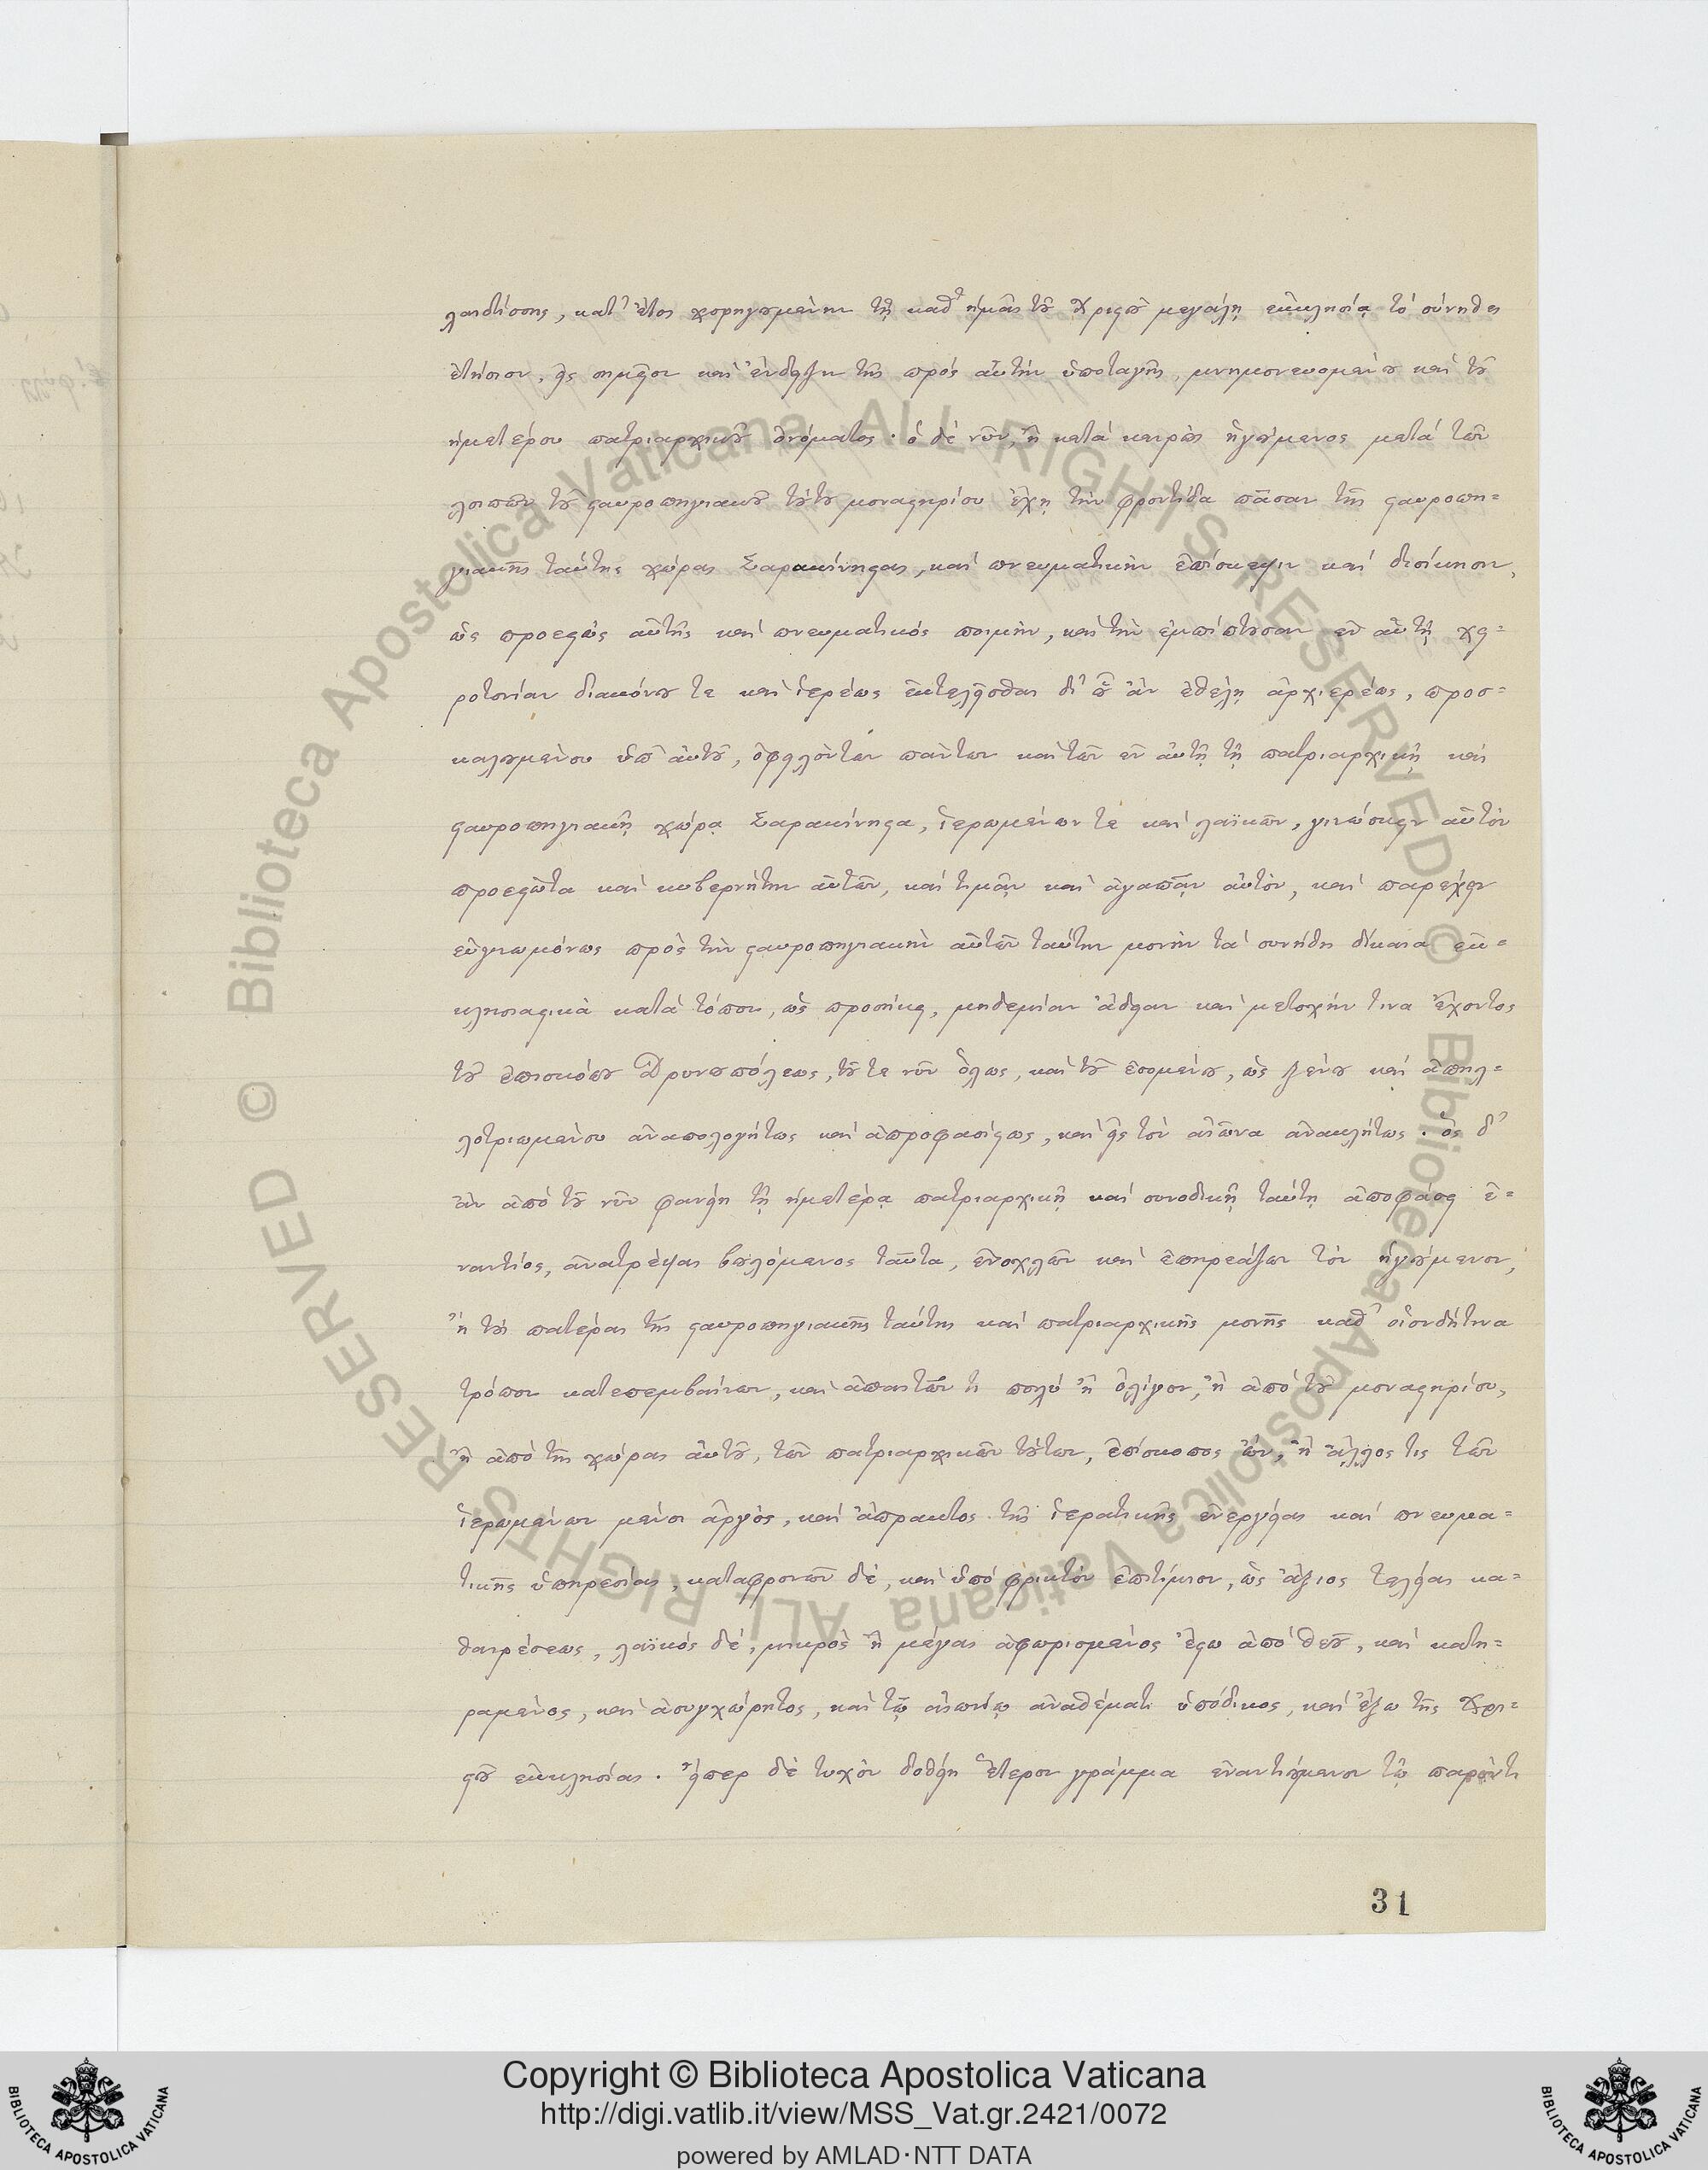 λαιδίσσης, κατ' ἔτος χορηγουμένην τῇ καθ' ἡμᾶς τοῦ Χριστοῦ μεγάλῃ ἐκκλησίᾳ τὸ σύνηθες
ἐτήσιον, εἰς σημεῖον καὶ ἔνδειξιν τῆς πρὸς αὐτὴν ὑποταγῆς, μνημονευομένου καὶ τοῦ
ἡμετέρου πατριαρχικοῦ ὀνόματος · ὁ δὲ νῦν, ἢ κατὰ καιρὸν ἡγούμενος μετὰ τῶν
λοιπῶν τοῦ σταυροπηγιακοῦ τούτου μοναστηρίου ἔχῃ τὴν φροντίδα πᾶσαν τῆς σταυροπη=
γιακῆς ταύτης χώρας Σαρακίνηστας, καὶ πνευματικὴν ἐπίσκεψιν καὶ διοίκησιν,
ὡς προεστὼς αὐτῆς καὶ πνευματικὸς ποιμὴν, καὶ τὴν ἐμπίπτουσαν ἐν αὐτῇ χει=
ροτονίαν διακόνου τε καὶ ἱερέως ἐκτελεῖσθαι δι' οὗ ἂν ἐθέλῃ ἀρχιερέως, προσ=
καλουμένου ὑπ' αὐτοῦ, ὀφειλόντων πάντων καὶ τῶν ἐν αὐτῇ τῇ πατριαρχικῇ καὶ
σταυροπηγιακῇ χώρᾳ Σαρακίνηστα, ἱερωμένων τε καὶ λαϊκῶν, γινώσκειν αὐτὸν
προεστῶτα καὶ κυβερνήτην αὐτῶν, καὶ τιμᾷν καὶ ἀγαπᾷν αὐτὸν, καὶ παρέχειν
εὐγνωμόνως πρὸς τὴν σταυροπηγιακὴν αὐτῶν ταύτην μονὴν τὰ συνήθη δίκαια ἐκ=
κλησιαστικὰ κατὰ τόπον, ὡς προσήκει, μηδεμίαν ἄδειαν καὶ μετοχήν τινα ἔχοντος
τοῦ ἐπισκόπου Δρυνουπόλεως, τοῦ τε νῦν ὅλως, καὶ τοῦ ἐσομένου, ὡς ξένου καὶ ἀπηλ=
λοτριωμένου ἀναπολογήτως καὶ ἀπροφασίστως, καὶ εἰς τὸν αἰῶνα ἀνακλήτως · ὃς δ'
ἂν ἀπὸ τοῦ νῦν φανείη τῇ ἡμετέρᾳ πατριαρχικῇ καὶ συνοδικῇ ταύτῃ ἀποφάσει ἐ=
ναντίος, ἀνατρέψαι βουλόμενος ταῦτα, ἐνοχλῶν καὶ ἐπηρεάζων τὸν ἡγούμενον,
ἢ τοὺς πατέρας τῆς σταυροπηγιακῆς ταύτης καὶ πατριαρχικῆς μονῆς καθ' οἱονδήτινα
τρόπον κατεπεμβαίνων, καὶ ἀπαιτῶν τι πολὺ ἢ ὀλίγον, ἢ ἀπὸ τοῦ μοναστηρίου,
ἢ ἀπὸ τῆς χώρας αὐτοῦ, τῶν πατριαρχικῶν τούτων, ἐπίσκοπος ὢν, ἢ ἄλλος τις τῶν
ἱερωμένων μένοι ἀργὸς, καὶ ἄπρακτος τῆς ἱερατικῆς ἐνεργείας καὶ πνευμα=
τικῆς ὑπηρεσίας, καταφρονῶν δὲ, καὶ ὑπὸ φρικτὸν ἐπιτίμιον, ὡς ἄξιος τελείας κα=
θαιρέσεως, λαϊκὸς δὲ, μικρὸς ἢ μέγας ἀφωρισμένος ἔστω ἀπὸ θεοῦ, καὶ κατη=
ραμένος, καὶ ἀσυγχώρητος, καὶ τῷ αἰωνίῳ ἀναθέματι ὑπόδικος, καὶ ἔξω τῆς Χρι=
στοῦ ἐκκλησίας. εἴπερ δὲ τυχὸν δοθείη ἕτερον γράμμα ἐναντιούμενον τῷ παρόντι
31
© Biblioteca Apostolica Vaticana ALL RIGHTS RESERVED © Biblioteca Apostolica Vaticana ALL RIGHTS RESERVED
Copyright © Biblioteca Apostolica Vaticana
http://digi.vatlib.it/view/MSS_Vat.gr.2421/0072
powered by AMLAD·NTT DATA
BIBLIOTECA APOSTOLICA VATICANA
BIBLIOTECA APOSTOLICA VATICANA